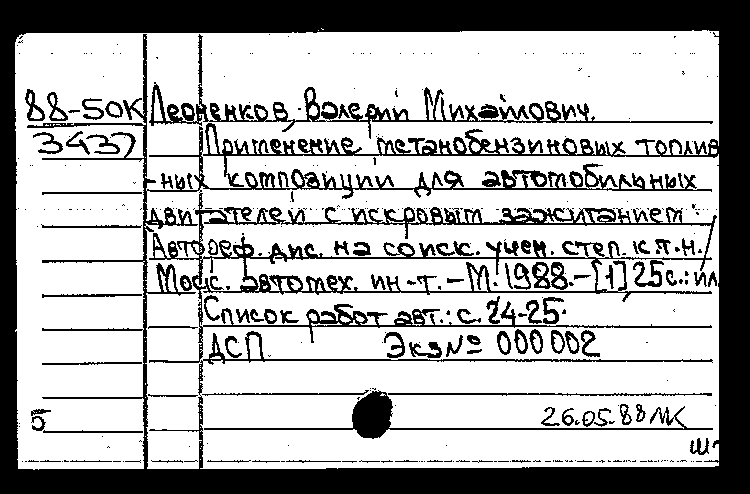 88-50К Леоненков, Валерий Михайлович.
3437 Применение метанобензиновых топлив
-ных композиций для автомобильных
двигателей с искровым зажиганием:
Автореф. дис. на соиск. учен. степ. к.т.н./
Моск. автомех. ин-т.-М. 1988.-[1], 25с.: ил
Список работ авт.: с. 24-25.
ДСП Экз № 000002
Б 26.05.88 МК
ш